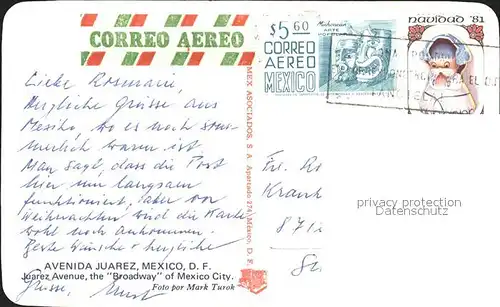 CORREO AEREO
Liebe Rosmarie,
Herzliche Grüsse aus
Mexiko, wo es noch som-
merlich warm ist
Man sagt, dass die Post
hier nur langsam
funktioniert, aber vor
Weihnachten wird die Karte
wohl noch ankommen.
Beste Wünsche + herzliche
Grüsse,
AVENIDA JUAREZ, MEXICO, D. F.
Juarez Avenue, the "Broadway" of Mexico City.
Foto por Mark Turok
MEX ASOCIADOS, S. A. Apartado 274, México, D. F.
$5.60
Michoacan
ARTE
CORREO
AEREO
MEXICO
navidad '81
Frl. Ro
Krank
8712
privacy protection
Datenschutz